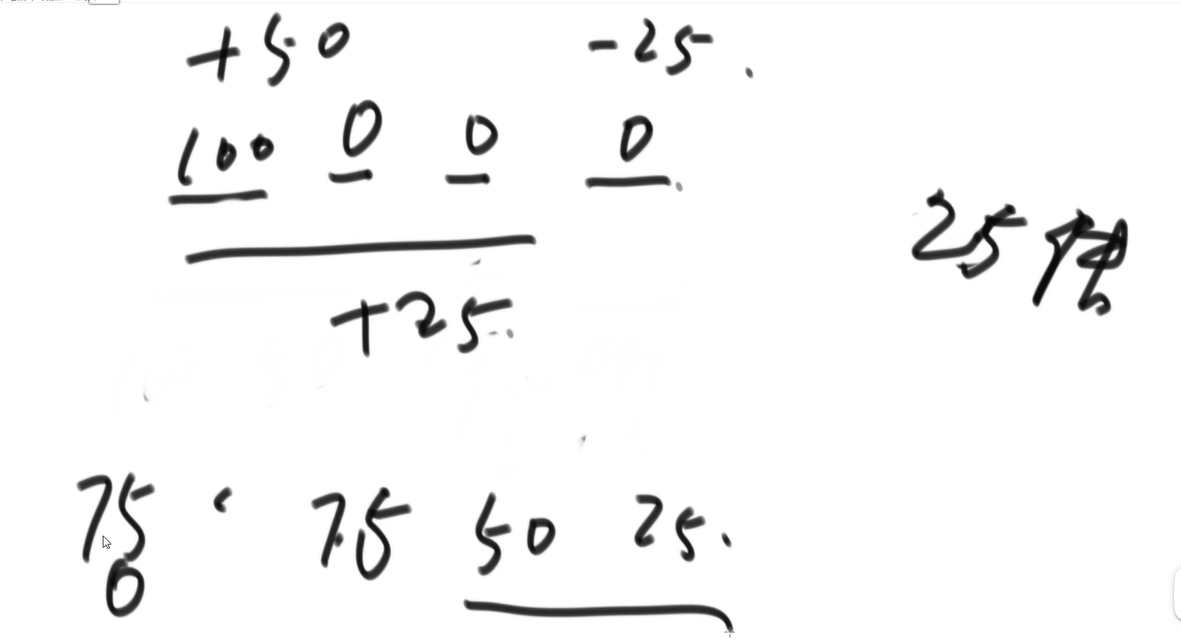 +50 -25.
100 0 0 0
+25
25
75 75 50 25.
0